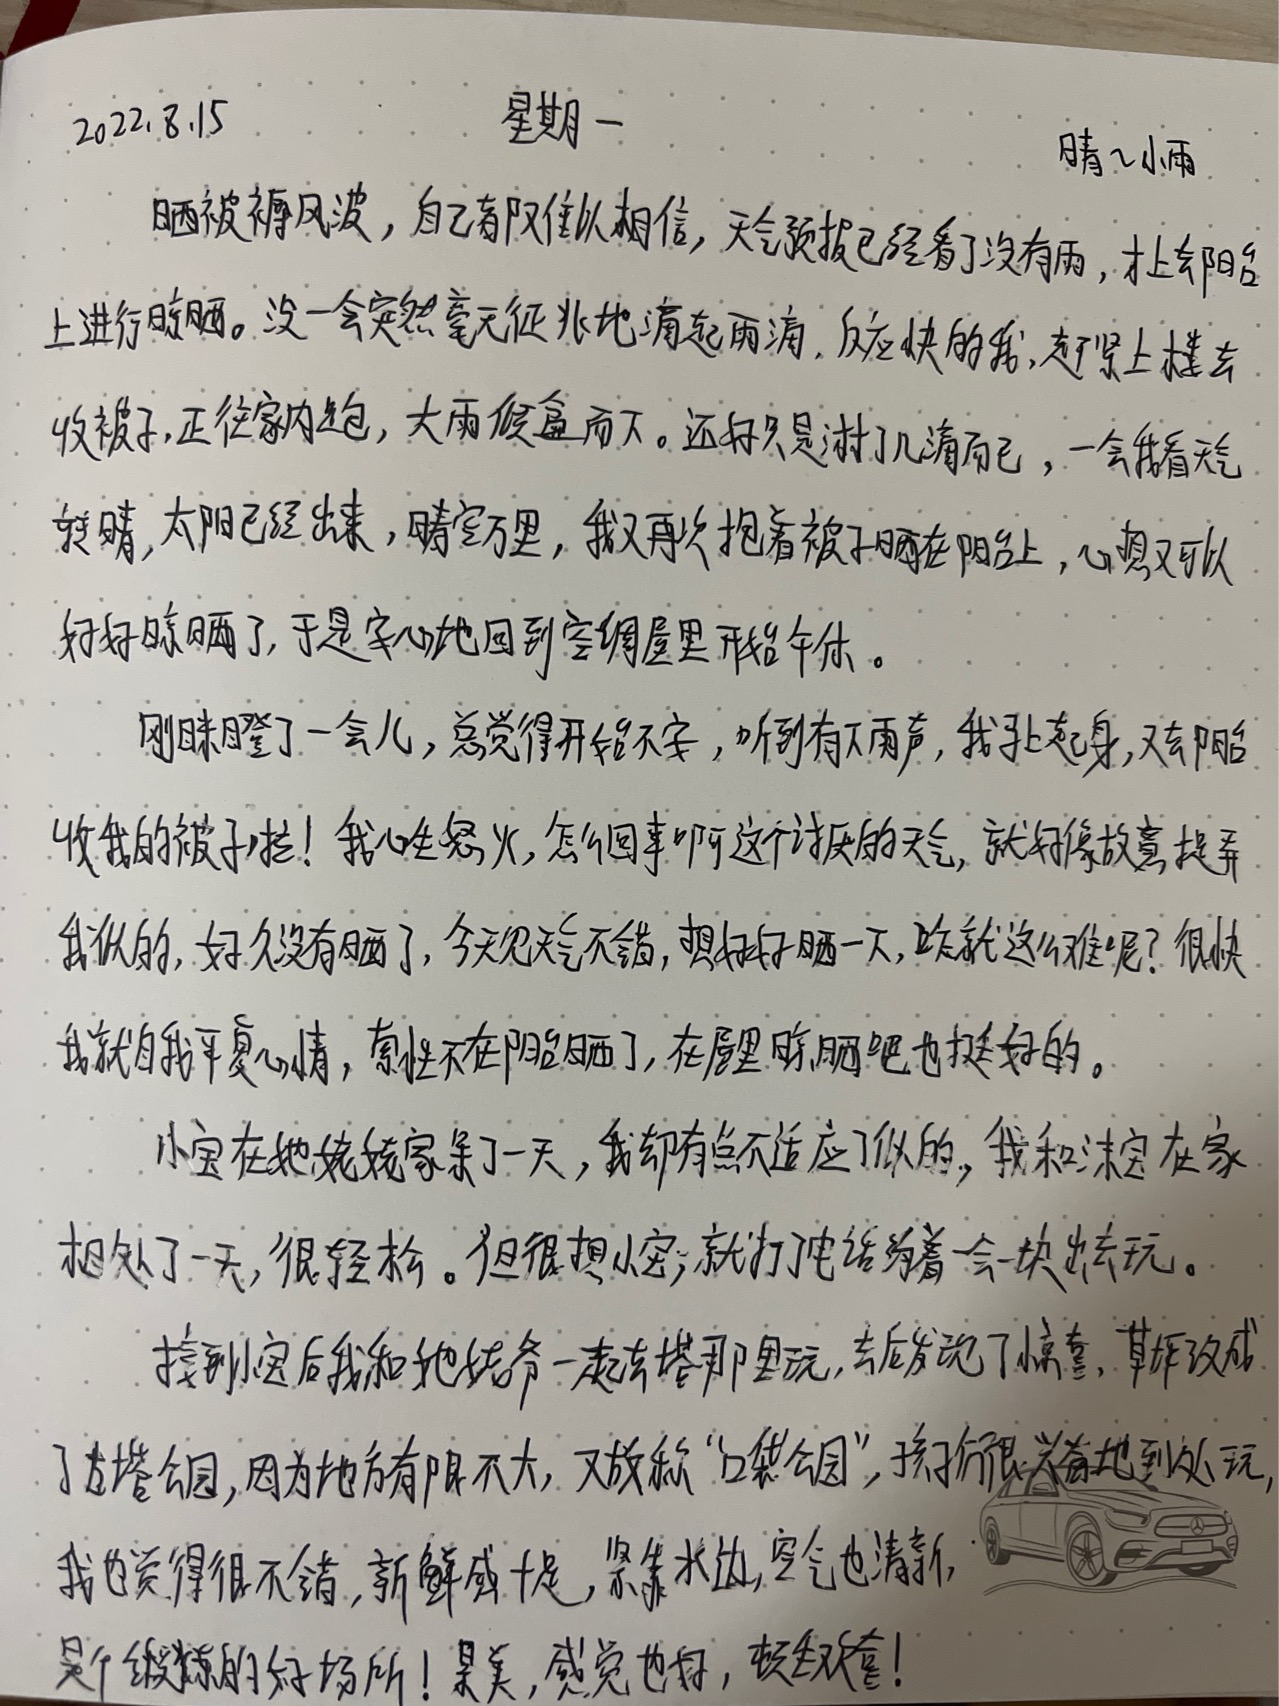 2022.8.15 星期一 晴~小雨
晒被褥风波，自己都难以相信，天气预报已经看了没有雨，才上去阳台
上进行晾晒。没一会突然毫无征兆地滴起雨滴，反应快的我，赶紧上楼去
收被子，正往家内跑，大雨倾盆而下。还好只是淋了几滴而已，一会我看天气
转晴，太阳已经出来，晴空万里，我又再次抱着被子晒在阳台上，心想又可以
好好晾晒了，于是安心地回到空调屋里开始午休。
刚眯瞪了一会儿，总觉得开始不安，听到有下雨声，我马上起身，又去阳台
收我的被子啦！我心生怒火，怎么回事啊这个讨厌的天气，就好像故意捉弄
我似的，好久没有晒了，今天见天气不错，想好好晒一下，咋就这么难呢？很快
我就自我平复心情，索性不在阳台晒了，在屋里晾晒吧也挺好的。
小宝在她姥姥家呆了一天，我却有点不适应了似的，我和沫宝在家
相处了一天，很轻松。但很想小宝，就打了电话约着一会一块出去玩。
接到小宝后我和她姥爷一起去塔那里玩，去后发现了惊喜，草坪改成
了古塔公园，因为地方有限不大，又故称“口袋公园”，孩子们很兴奋地到处玩，
我也觉得很不错，新鲜感十足，紧靠水边，空气也清新，
是个锻炼的好场所！景美，感觉也好，顿生欢喜！